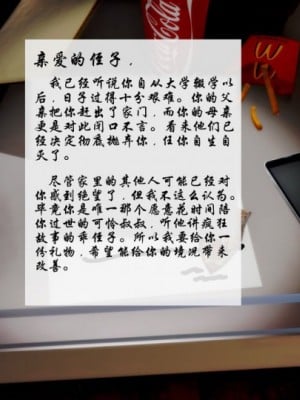 Coca-Cola
亲爱的侄子，
我已经听说你自从大学辍学以
后，日子过得十分艰难。你的父
亲把你赶出了家门，而你的母亲
更是对此闭口不言。看来他们已
经决定彻底抛弃你，任你自生自
灭了。
尽管家里的其他人可能已经对
你感到绝望了，但我不这么认为。
毕竟你是唯一那个愿意花时间陪
你过世的可怜叔叔，听他讲疯狂
故事的乖侄子。所以我要给你一
份礼物，希望能给你的境况带来
改善。